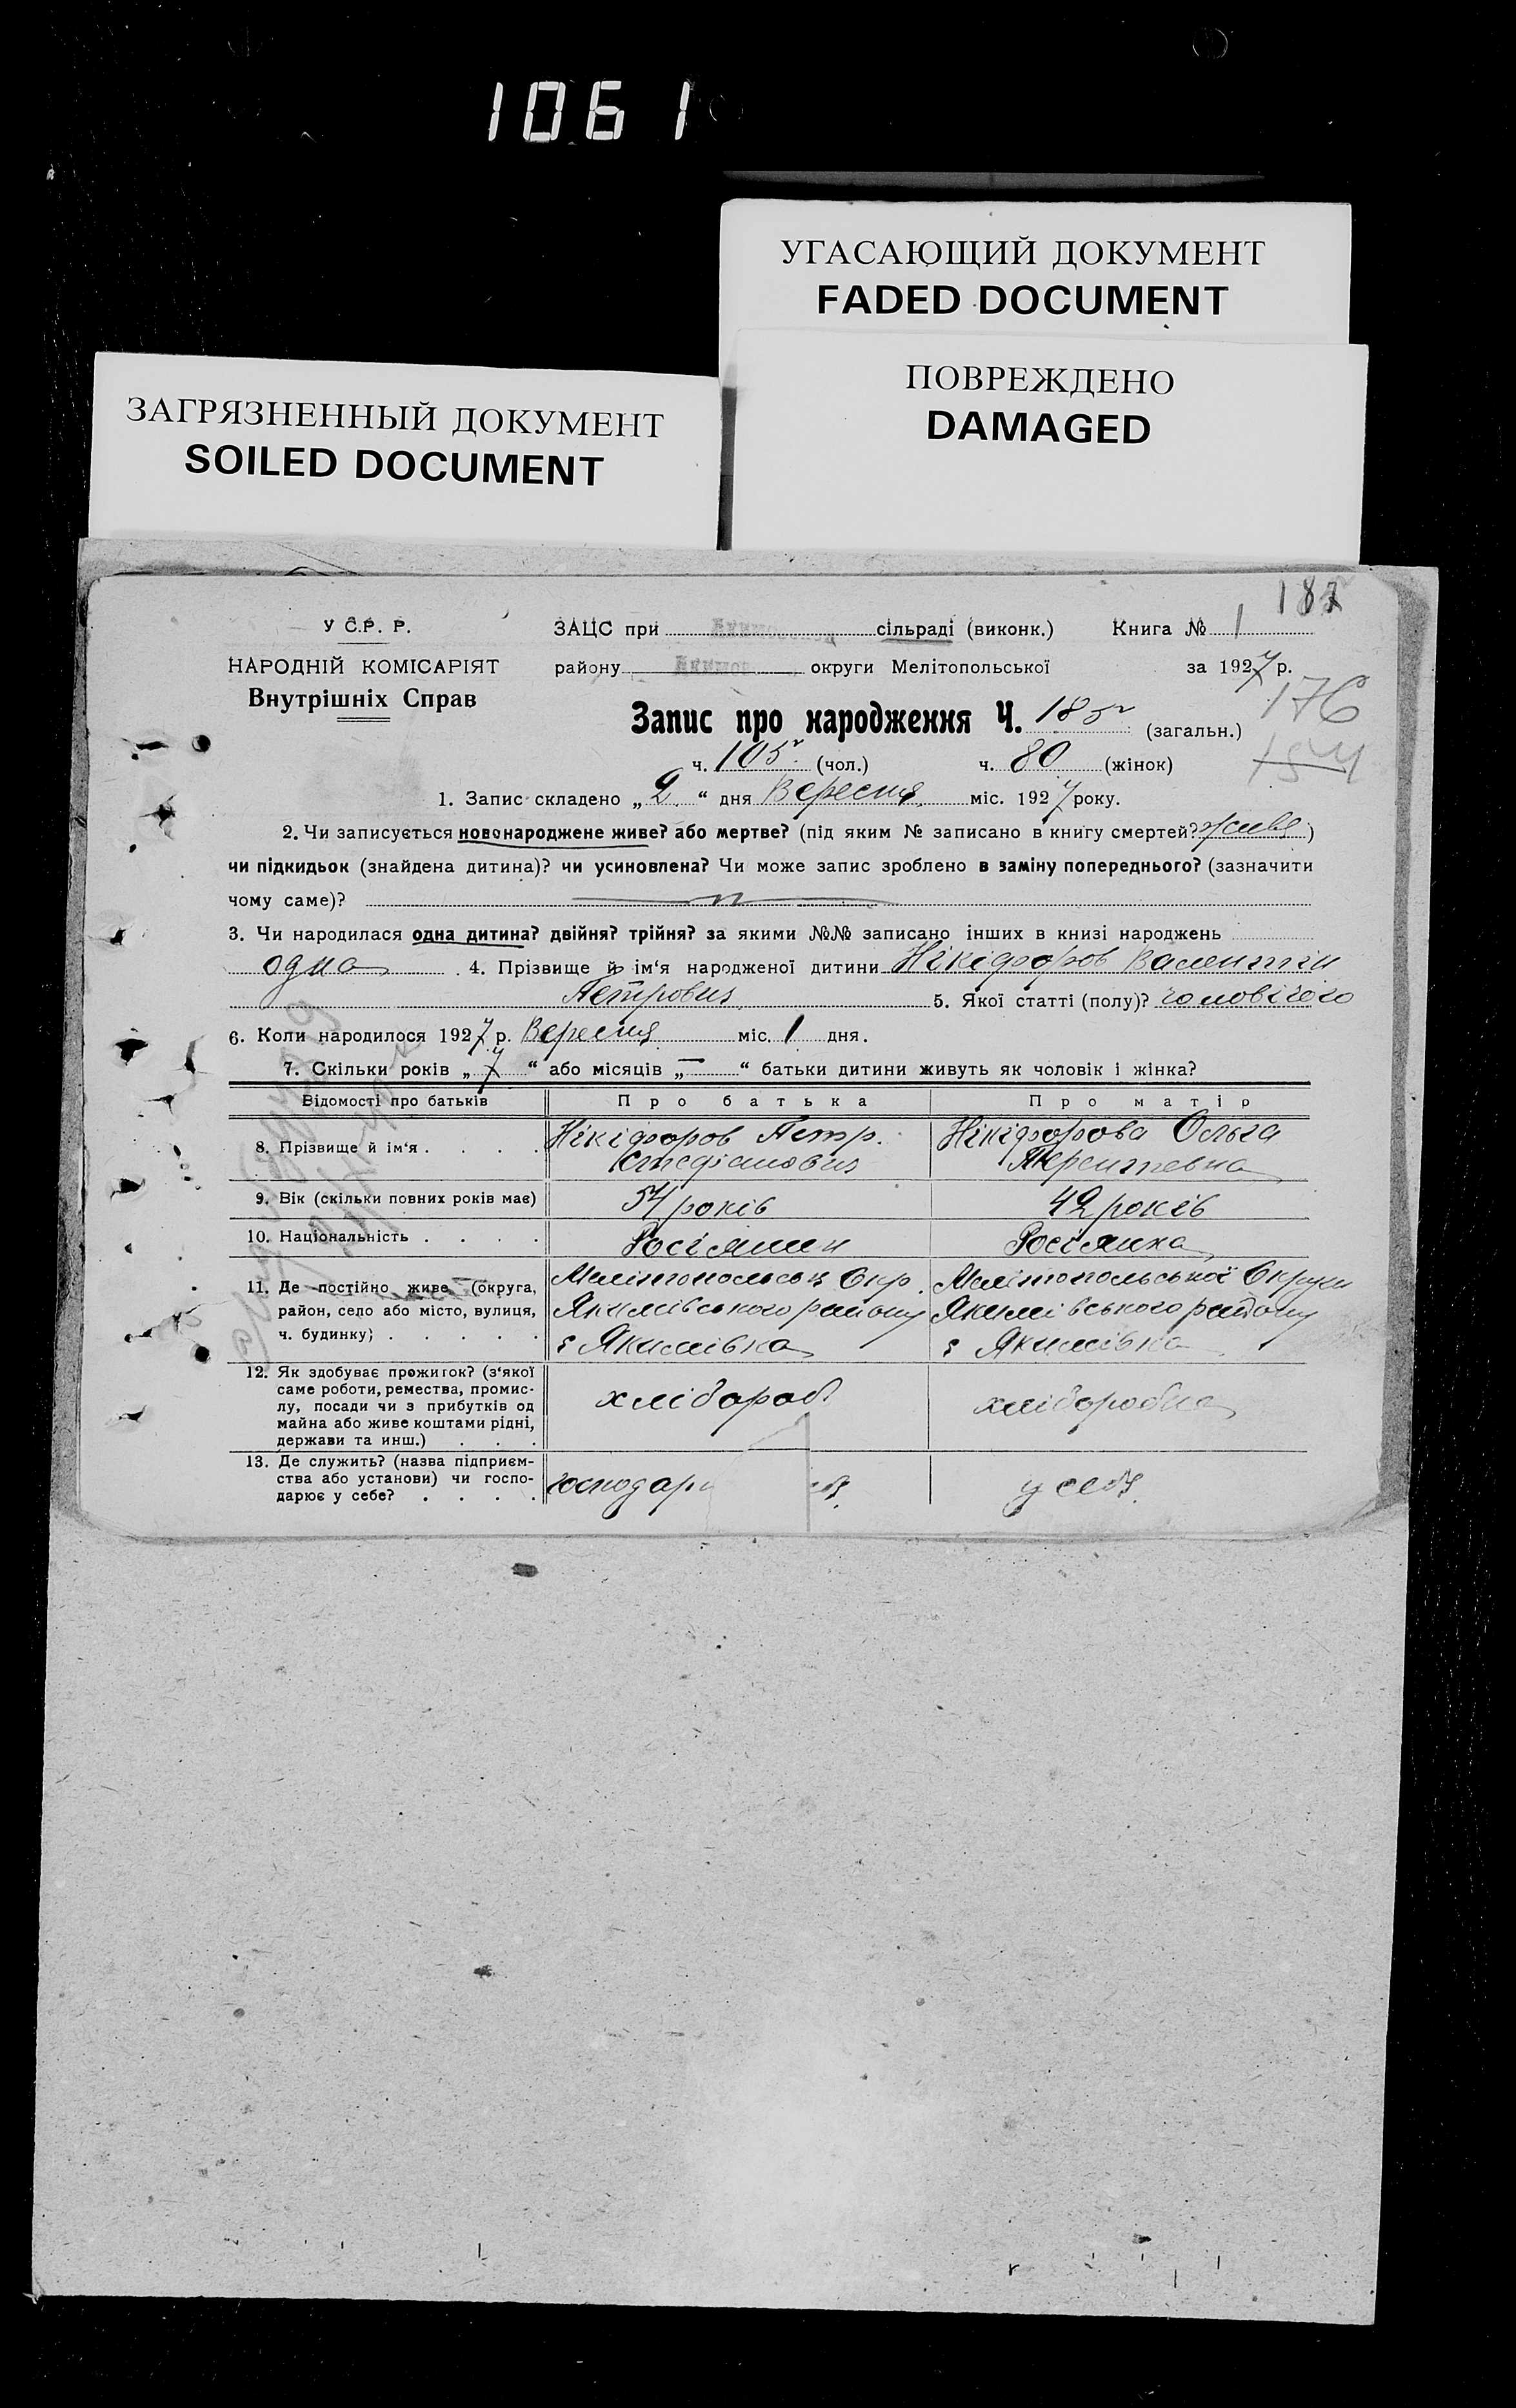 1061
УГАСАЮЩИЙ ДОКУМЕНТ
FADED DOCUMENT
ПОВРЕЖДЕНО
DAMAGED
ЗАГРЯЗНЕННЫЙ ДОКУМЕНТ
SOILED DOCUMENT
У С.Р. Р.
НАРОДНІЙ КОМІСАРІЯТ
Внутрішніх Справ
ЗАЦС при сільраді (виконк.) Книга № 1
району округи Мелітопольської за 1927 р.
176
Запис про народження Ч. 185 (загальн.)
ч. 105 (чол.) ч. 80 (жінок)
154
1. Запис складено „ 2 “ дня Вересня міс. 1927 року.
2. Чи записується новонароджене живе? або мертве? (під яким № записано в книгу смертей? живе )
чи підкидьок (знайдена дитина)? чи усиновлена? Чи може запис зроблено в заміну попереднього? (зазначити
чому саме)?
3. Чи народилася одна дитина? двійня? трійня? за якими №№ записано інших в книзі народжень
одна 4. Прізвище й ім‘я народженої дитини Нікіфоров Валентін
Петрович 5. Якої статті (полу)? чоловічого
6. Коли народилося 1927 р. Вересня міс. 1 дня.
7. Скільки років „ 7 “ або місяців „ — “ батьки дитини живуть як чоловік і жінка?
Відомості про батьків Про батька Про матір
8. Прізвище й ім‘я . . . . Нікіфоров Петр. Нікіфорова Ольга
9. Вік (скільки повних років має) 54 років 42 років
10. Національність . . . . Росіянин Росіянка
11. Де постійно живе (округа, Мелітопольськ Окр. Мелітопольської Округи
район, село або місто, вулиця, Якимівського району Якимівського району
ч. будинку) . . . . . с Якимівка с Якимівка
12. Як здобуває прожиток? (з‘якої
саме роботи, ремества, промис-
лу, посади чи з прибутків од хлібороб хліборобка
майна або живе коштами рідні,
держави та инш.) . . .
13. Де служить? (назва підприєм-
ства або установи) чи госпо-
дарює у себе? . . . . господарю у себя